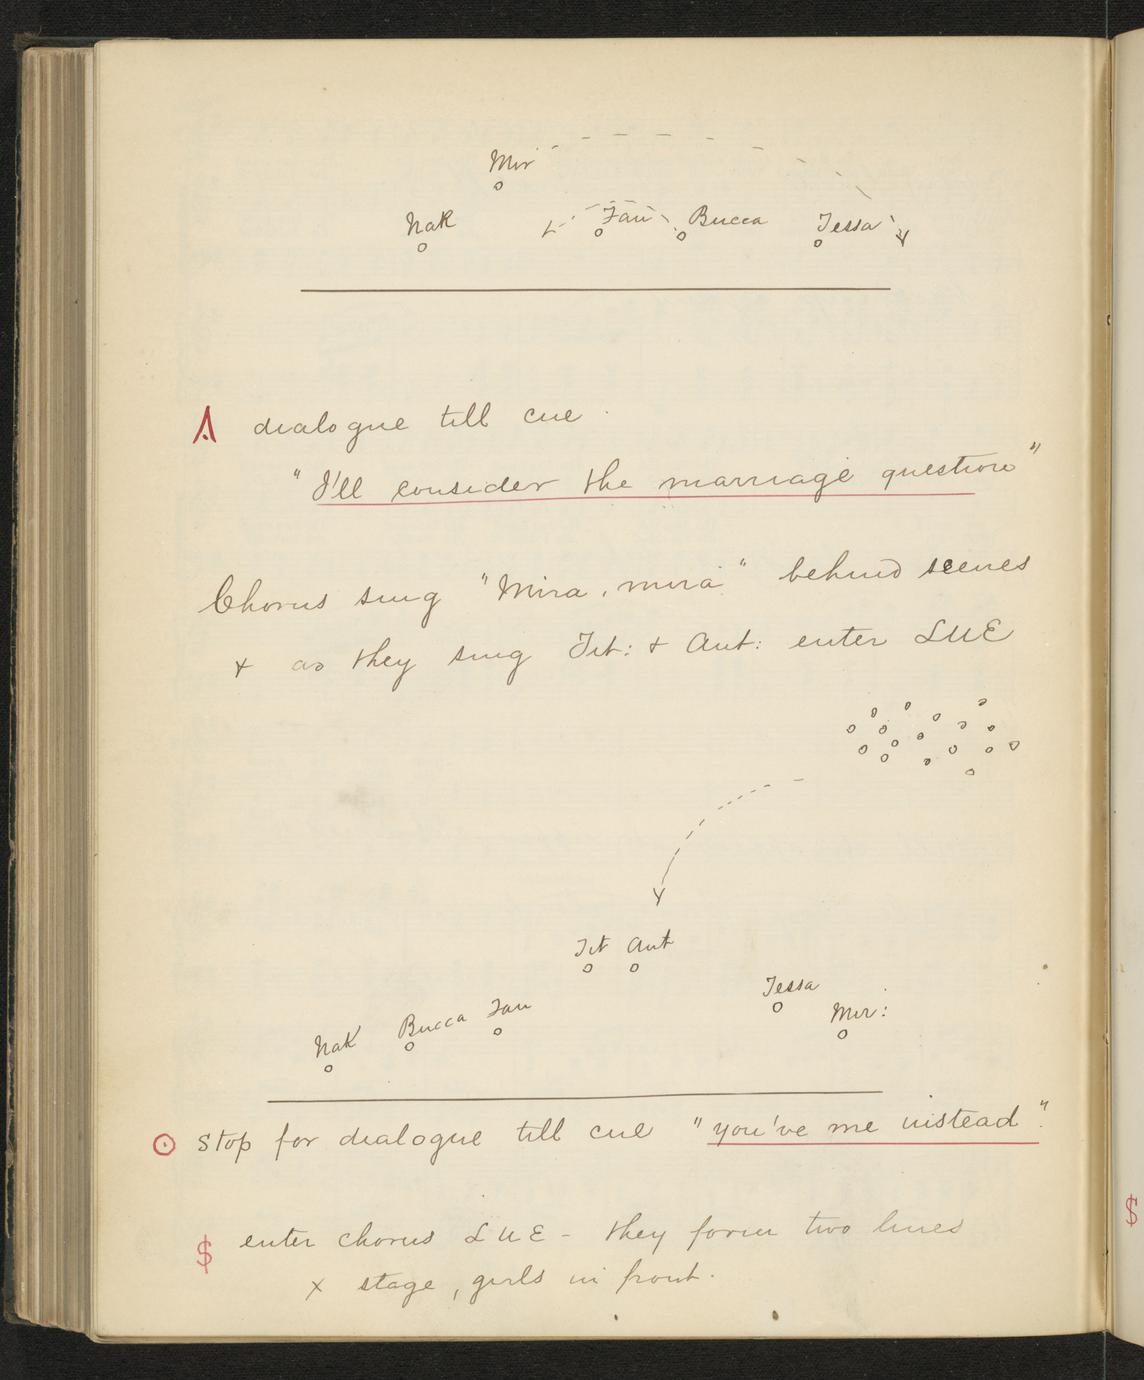 Mir
Nak Fau Bucca Tessa
dialogue till cue
"I'll consider the marriage question"
Chorus sing "Mira, mira" behind scenes
+ as they sing Tit: + Ant: enter LUE
Tit Ant
Tessa
Mir:
Nak Bucca Fau
Stop for dialogue till cue "you've me instead".
$ enter chorus LUE - they form two lines
x stage, girls in front.
$